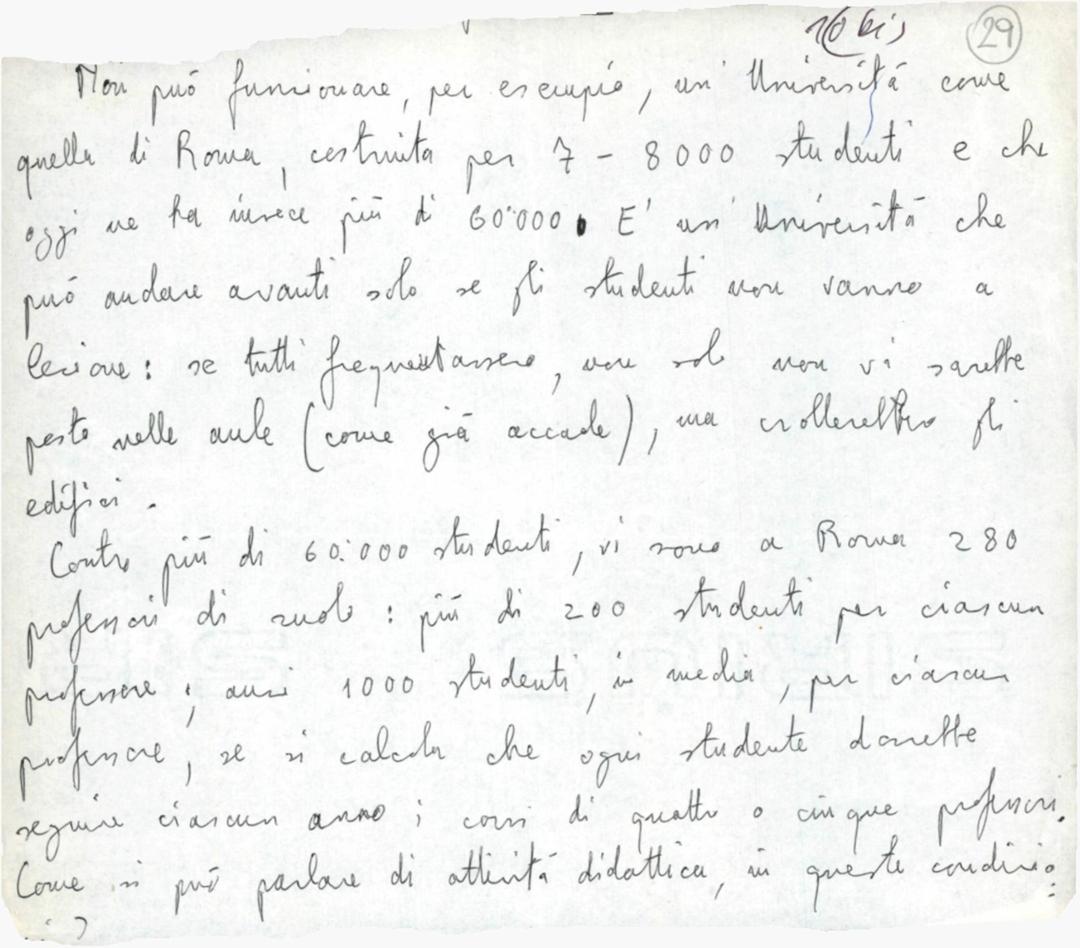 10 bis
29
Non può funzionare, per esempio, un' Università come
quella di Roma, costruita per 7 - 8000 studenti e che
oggi ne ha invece più di 60.000. E' un' Università che
può andare avanti solo se gli studenti non vanno a
lezione: se tutti frequentassero, non solo non vi sarebbe
posto nelle aule (come già accade), ma crollerebbero gli
edifici.
Contro più di 60.000 studenti, vi sono a Roma 280
professori di ruolo: più di 200 studenti per ciascun
professore; anzi 1000 studenti, in media, per ciascun
professore, se si calcola che ogni studente dovrebbe
seguire ciascun anno i corsi di quattro o cinque professori.
Come si può parlare di attività didattica, in queste condizio=
ni?